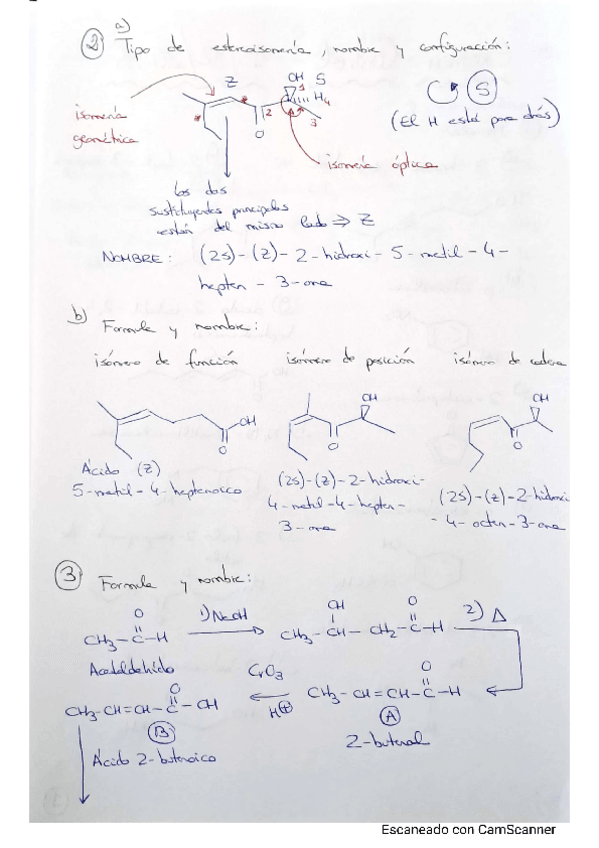 a)
② Tipo de estereoisomería, nombre y configuración:
Z
OH S
1
H 4
2
3
O
* *
S
(El H está para atrás)
isomería geométrica
isomería óptica
los dos
sustituyentes principales
están del mismo lado ⇒ Z
NOMBRE: (2S)-(Z)-2-hidroxi-5-metil-4-
hepten-3-ona
b) Formula y nombre:
isómero de función
isómero de posición
isómero de cadena
OH
O
OH
O
OH
O
Ácido (Z)
5-metil-4-heptenoico
(2S)-(Z)-2-hidroxi-
4-metil-4-hepten-
3-ona
(2S)-(Z)-2-hidroxi
-4-octen-3-ona
③ Formula y nombre:
O
CH3-C-H
1) NaOH
OH O
CH3-CH-CH2-C-H
2) Δ
Acetaldehído
O
CH3-CH=CH-C-H
A
2-butenal
CrO3
H⊕
O
CH3-CH=CH-C-OH
B
Ácido 2-butenoico
Escaneado con CamScanner